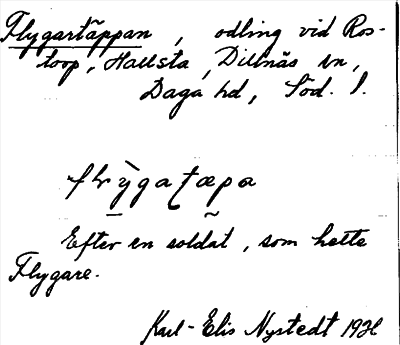 Flygartäppan, odling vid Ros-
torp, Hallsta, Dillnäs sn,
Daga hd, Söd. l.
Efter en soldat, som hette
Flygare.
Karl-Elis Nystedt